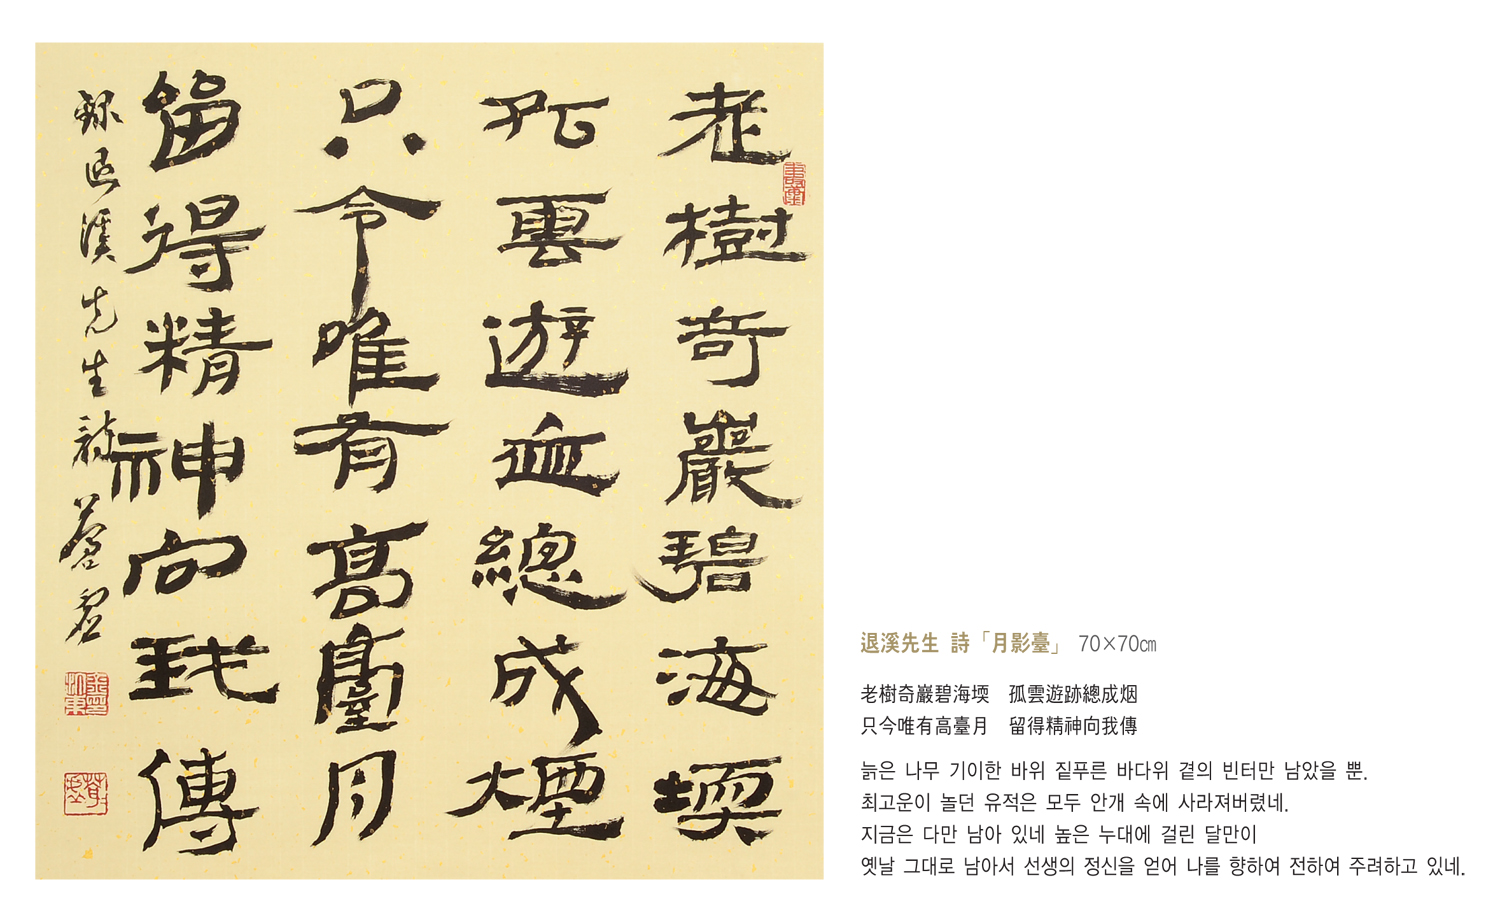 老樹奇巖碧海堧
孤雲遊迹總成煙
只今唯有高臺月
留得精神向我傳
錄退溪先生詩
退溪先生 詩「月影臺」 70×70㎝
老樹奇巖碧海堧 孤雲遊跡總成烟
只今唯有高臺月 留得精神向我傳
늙은 나무 기이한 바위 짙푸른 바다위 곁의 빈터만 남았을 뿐.
최고운이 놀던 유적은 모두 안개 속에 사라져버렸네.
지금은 다만 남아 있네 높은 누대에 걸린 달만이
옛날 그대로 남아서 선생의 정신을 얻어 나를 향하여 전하여 주려하고 있네.